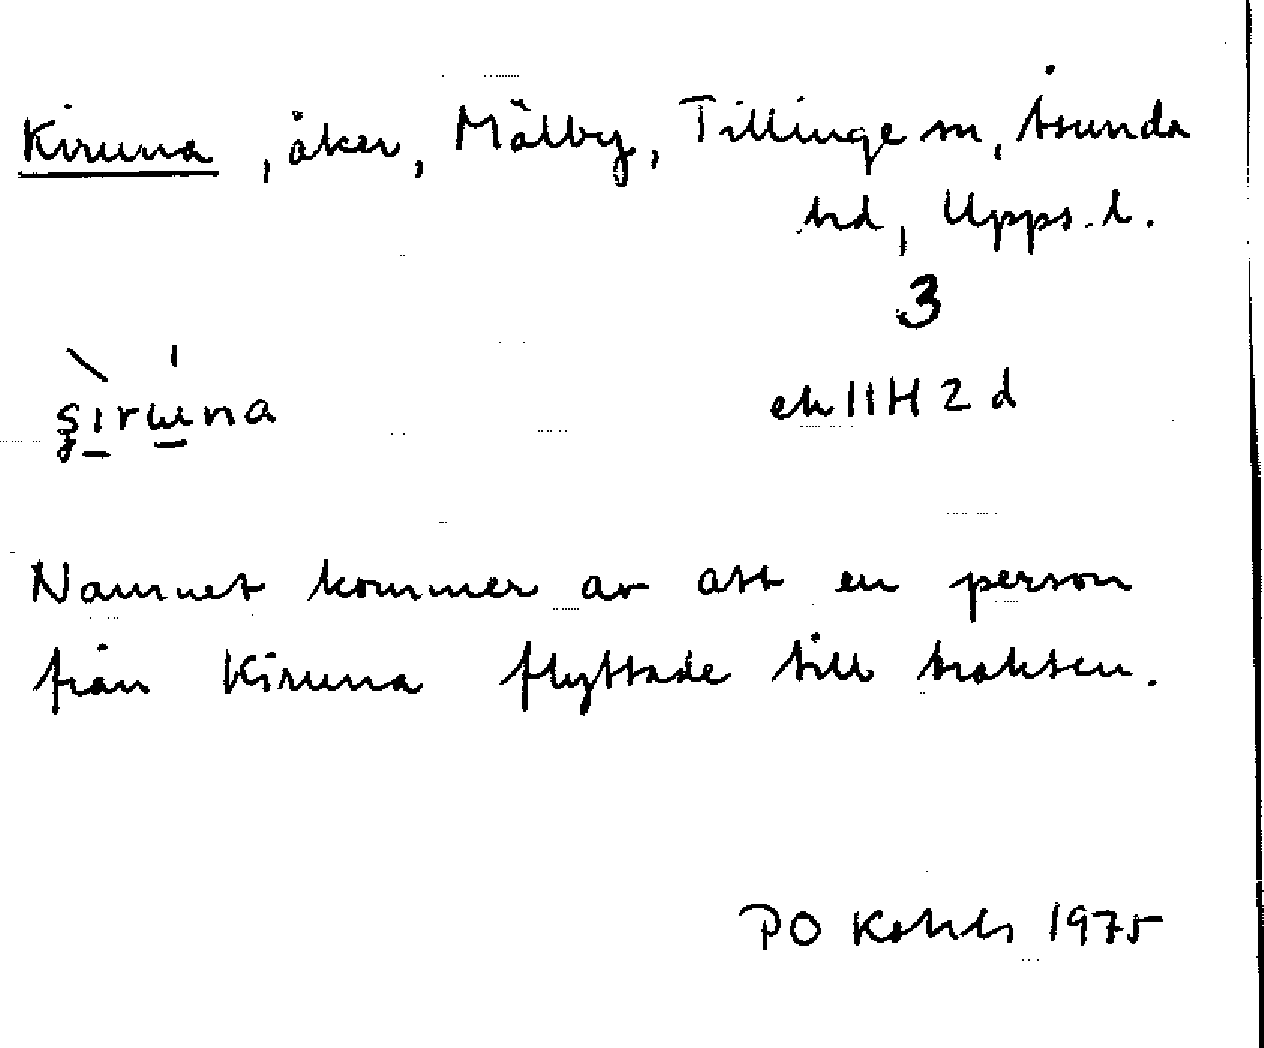 Kiruna, åker, Mälby, Tillinge sn, Åsunda
hd, Upps. l.
3
ek 11H 2 d
Namnet kommer av att en person
från Kiruna flyttade till trakten.
PO 1975